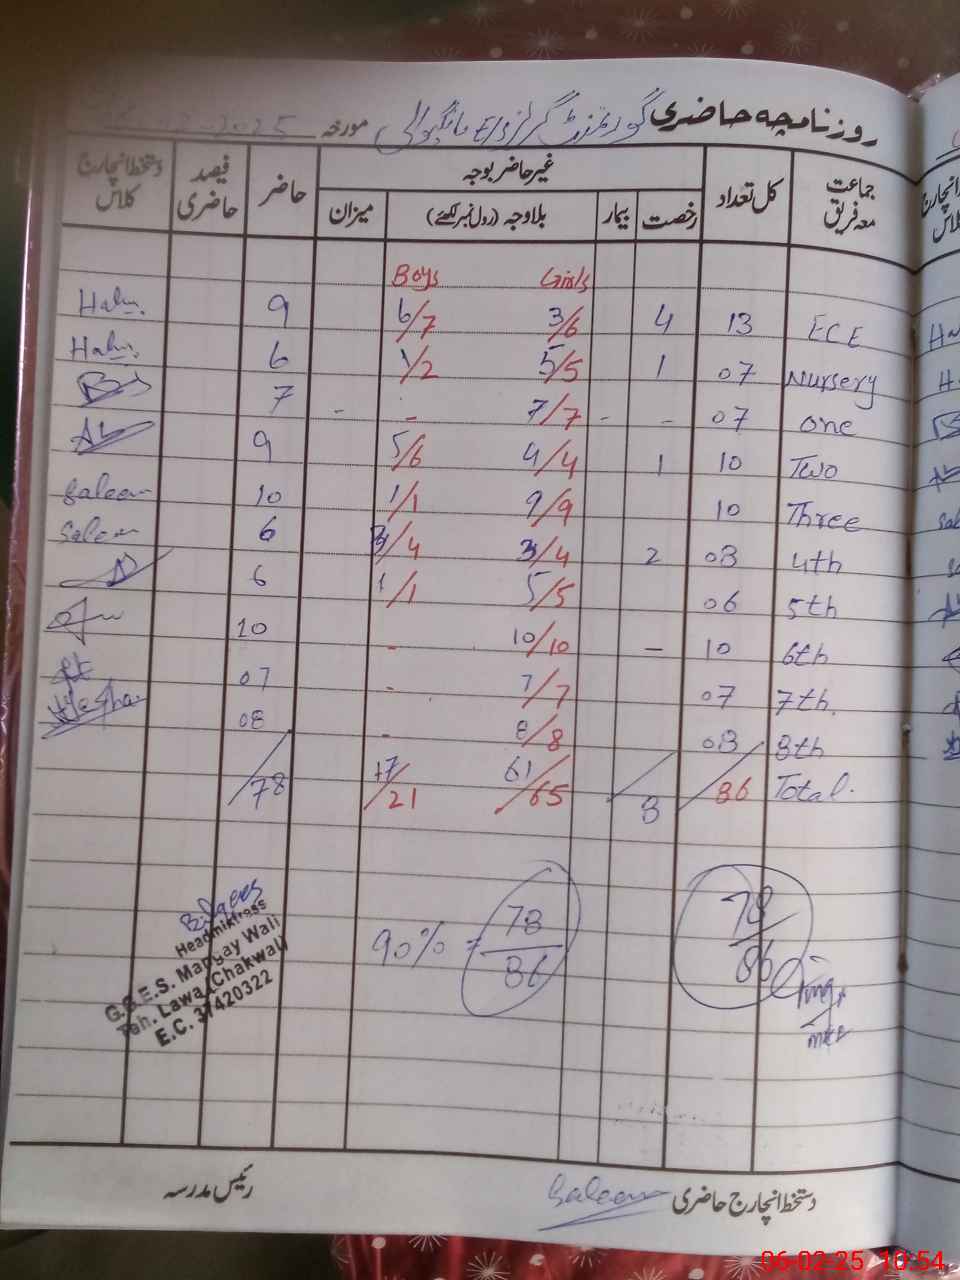 روزنامچہ حاضری گورنمنٹ گرلز مورخہ
جماعت معہ فریق کل تعداد غیر حاضر بوجہ حاضر فیصد حاضری دستخط انچارج کلاس
رخصت بیمار بلاوجہ (رول نمبر لکھئے) میزان
Boys Girls
Halu. 9 6/7 3/6 4 13 ECE
Halu. 6 1/2 5/5 1 07 Nursery
7 - - 7/7 - - 07 One
9 5/6 4/4 1 10 Two
Saleem 10 1/1 9/9 10 Three
Saleem 6 3/4 3/4 2 08 4th
6 1/1 5/5 06 5th
10 - 10/10 - 10 6th
07 - 7/7 07 7th.
08 - 8/8 08 8th
78 17/21 61/65 8 86 Total.
90% = 78/86 78/86
Headmistress
G.G.E.S. Mangay Wali
Teh. Lawa (Chakwal)
E.C. 37420322
دستخط انچارج حاضری Saleem رئیس مدرسہ
06-02-25 10:54